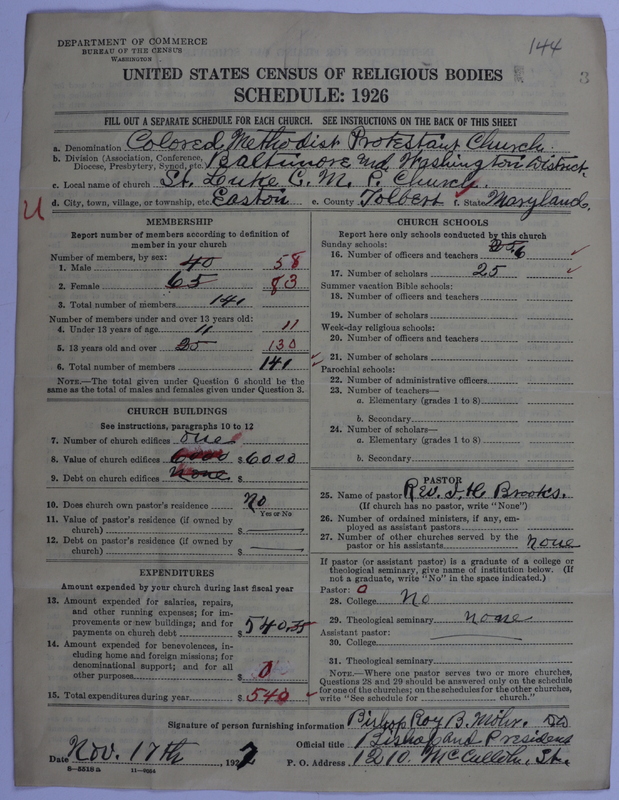 144
3
DEPARTMENT OF COMMERCE
BUREAU OF THE CENSUS
WASHINGTON
UNITED STATES CENSUS OF RELIGIOUS BODIES
SCHEDULE: 1926
FILL OUT A SEPARATE SCHEDULE FOR EACH CHURCH. SEE INSTRUCTIONS ON THE BACK OF THIS SHEET
a. Denomination Colored Methodist Protestant Church
b. Division (Association, Conference, Diocese, Presbytery, Synod, etc.) Baltimore Md Washington District.
c. Local name of church St. Luke C. M. P. Church
d. City, town, village, or township, etc. Easton e. County Tolbert f. State Maryland.
U
MEMBERSHIP
Report number of members according to definition of
member in your church
Number of members, by sex:
1. Male 40 58
2. Female 65 83
3. Total number of members 141
Number of members under and over 13 years old:
4. Under 13 years of age 11 11
5. 13 years old and over 25 130
6. Total number of members 141
NOTE.—The total given under Question 6 should be the
same as the total of males and females given under Question 3.
CHURCH BUILDINGS
See instructions, paragraphs 10 to 12
7. Number of church edifices one
8. Value of church edifices 6000 $ 6000
9. Debt on church edifices none $
10. Does church own pastor's residence No
Yes or No
11. Value of pastor's residence (if owned by
church) $
12. Debt on pastor's residence (if owned by
church) $
EXPENDITURES
Amount expended by your church during last fiscal year
13. Amount expended for salaries, repairs,
and other running expenses; for im-
provements or new buildings; and for
payments on church debt $ 540.35
14. Amount expended for benevolences, in-
cluding home and foreign missions; for
denominational support; and for all
other purposes $ 0
15. Total expenditures during year $ 540
CHURCH SCHOOLS
Report here only schools conducted by this church
Sunday schools:
16. Number of officers and teachers 6
17. Number of scholars 25
Summer vacation Bible schools:
18. Number of officers and teachers
19. Number of scholars
Week-day religious schools:
20. Number of officers and teachers
21. Number of scholars
Parochial schools:
22. Number of administrative officers
23. Number of teachers—
a. Elementary (grades 1 to 8)
b. Secondary
24. Number of scholars—
a. Elementary (grades 1 to 8)
b. Secondary
PASTOR
25. Name of pastor Rev. J. H. Brooks.
(If church has no pastor, write "None")
26. Number of ordained ministers, if any, em-
ployed as assistant pastors
27. Number of other churches served by the
pastor or his assistants none
If pastor (or assistant pastor) is a graduate of a college or
theological seminary, give name of institution below. (If
not a graduate, write "No" in the space indicated.)
Pastor: 0
28. College No
29. Theological seminary none
Assistant pastor:
30. College
31. Theological seminary
NOTE.—Where one pastor serves two or more churches,
Questions 28 and 29 should be answered only on the schedule
for one of the churches; on the schedules for the other churches,
write "See schedule for church."
Signature of person furnishing information Bishop Roy B. Mohr. DD
Official title Bishop and President
Date Nov. 17th, 1927 P. O. Address 1210. McCulloh. St.
8—5518 a 11—9064